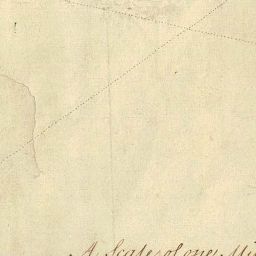 A Scale of one Mi